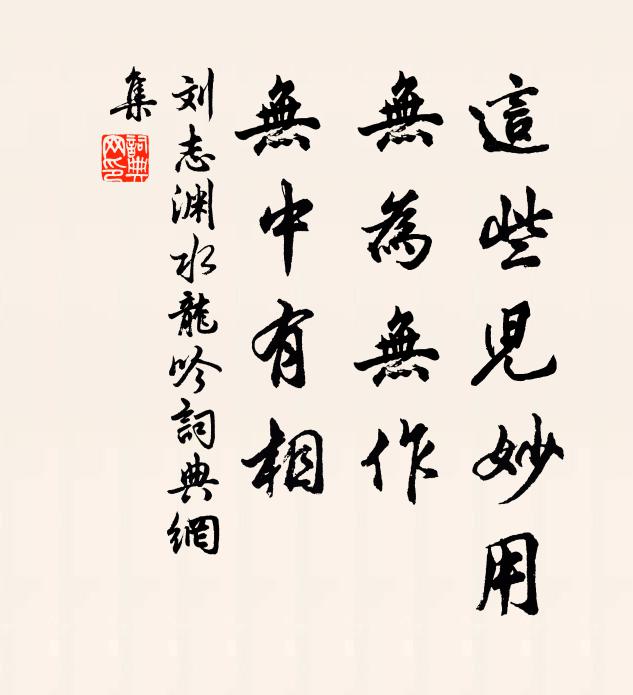 這些児妙用
無為無作
無中有相
刘志渊水龍吟詞典網
集
詞典
网印